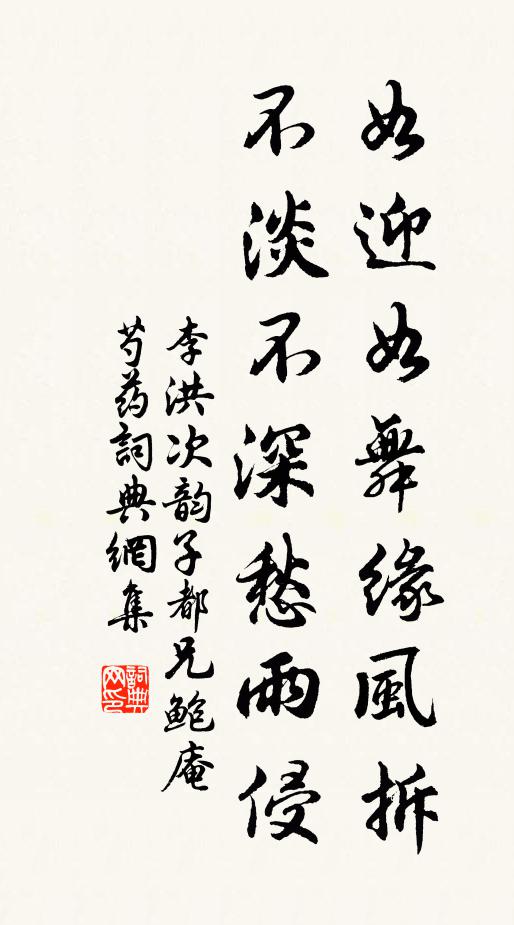 如迎如舞緣風拆
不淡不深愁雨侵
李洪次韵子都兄鲍庵
芍药詞典網集
詞典
网印